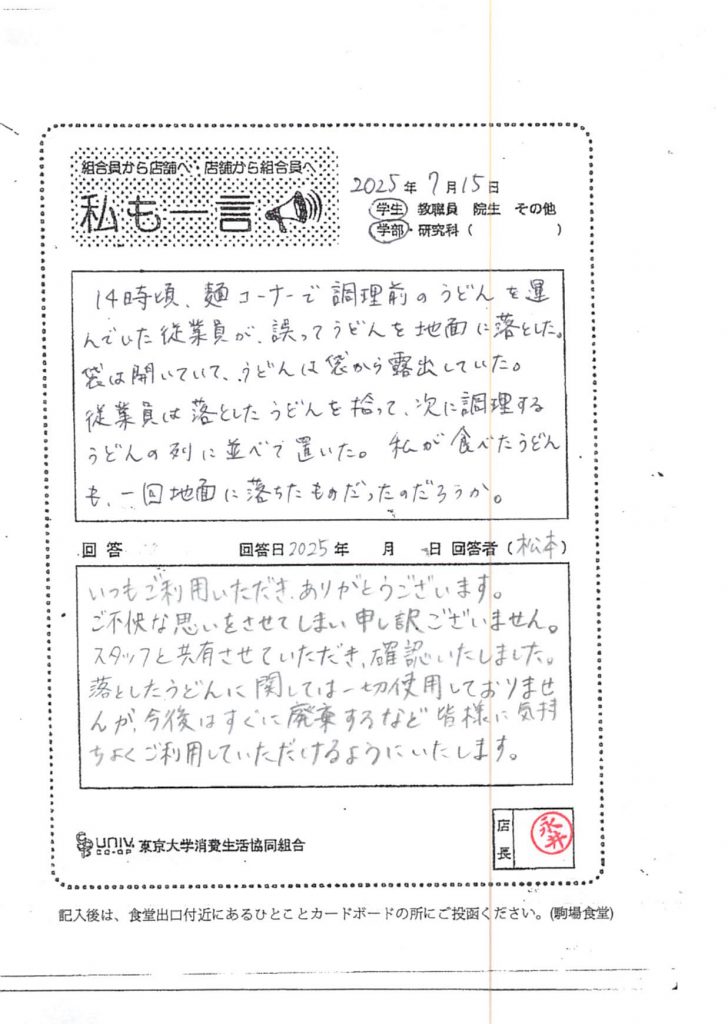 組合員から店舗へ・店舗から組合員へ
私も一言
2025年 7月15日
学生 教職員 院生 その他
学部・研究科( )
14時頃、麺コーナーで調理前のうどんを運
んでいた従業員が、誤ってうどんを地面に落とした。
袋は開いていて、うどんは袋から露出していた。
従業員は落としたうどんを拾って、次に調理する
うどんの列に並べて置いた。私が食べたうどん
も、一回地面に落ちたものだったのだろうか。
回答 回答日2025年 月 日 回答者(松本)
いつもご利用いただき、ありがとうございます。
ご不快な思いをさせてしまい申し訳ございません。
スタッフと共有させていただき、確認いたしました。
落としたうどんに関しては一切使用しておりませ
んが、今後はすぐに廃棄するなど皆様に気持
ちよくご利用していただけるようにいたします。
UNIV. CO-OP 東京大学消費生活協同組合
店長 永井
記入後は、食堂出口付近にあるひとことカードボードの所にご投函ください。(駒場食堂)